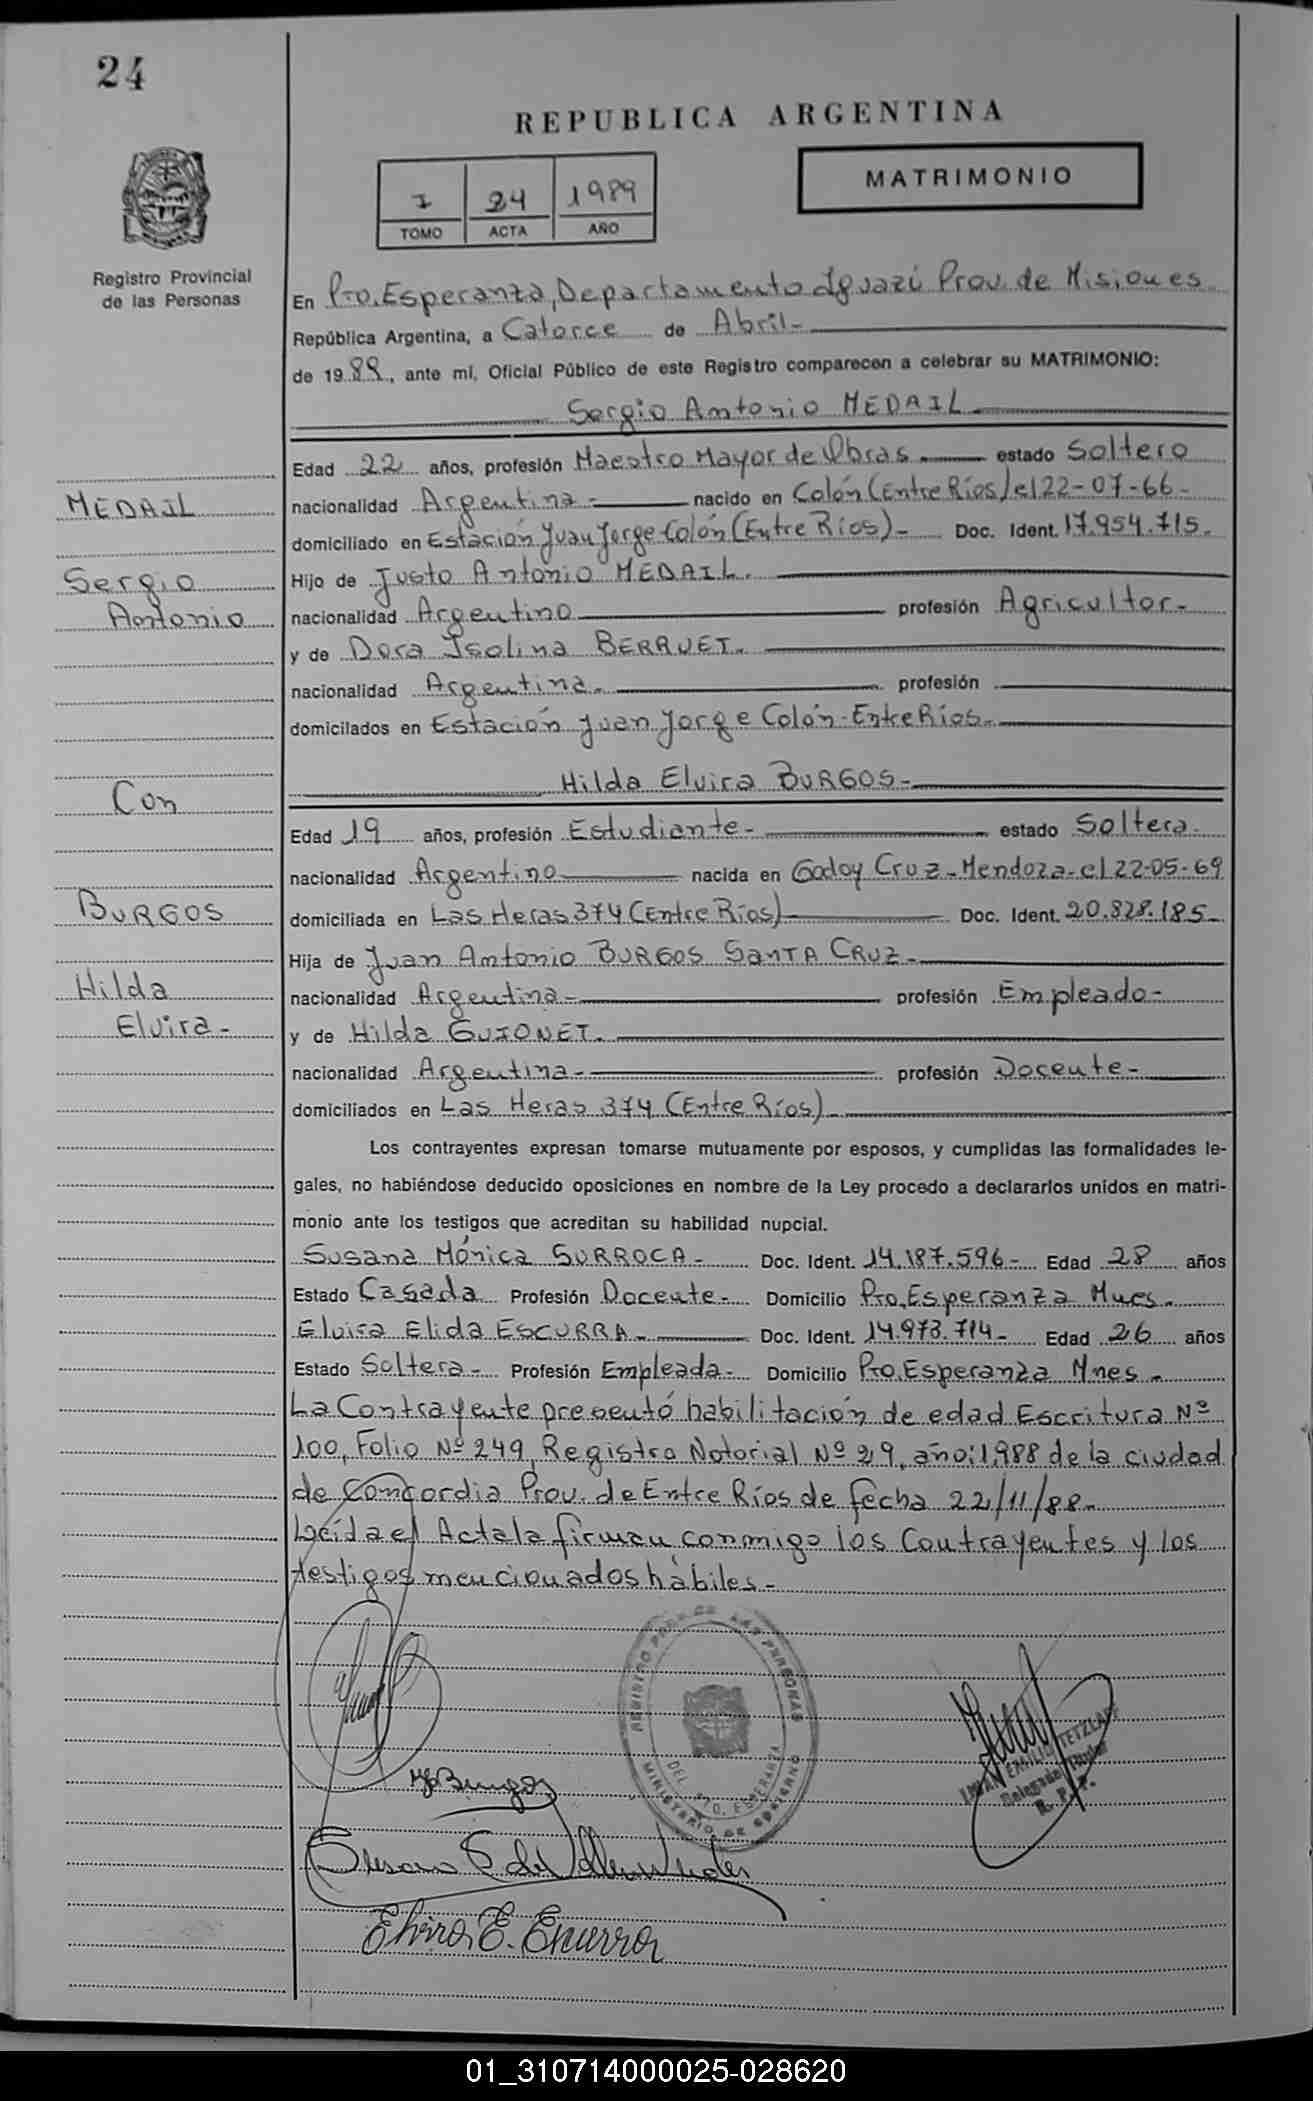 24
REPUBLICA ARGENTINA
I 24 1989
TOMO ACTA AÑO
MATRIMONIO
Registro Provincial
de las Personas
En Pto. Esperanza, Departamento Iguazú Prov. de Misiones
República Argentina, a Catorce de Abril-
de 1989, ante mí, Oficial Público de este Registro comparecen a celebrar su MATRIMONIO:
Sergio Antonio MEDAIL
Edad 22 años, profesión Maestro Mayor de Obras estado Soltero
MEDAIL
nacionalidad Argentina- nacido en Colón (Entre Ríos) el 22-07-66-
domiciliado en Estación Juan Jorge Colón (Entre Ríos)- Doc. Ident. 17.954.715.
Sergio
Antonio
Hijo de Justo Antonio MEDAIL.
nacionalidad Argentino profesión Agricultor-
y de Dora Isolina BERRUET.
nacionalidad Argentina. profesión
domicilados en Estación Juan Jorge Colón-Entre Ríos.
Con
Hilda Elvira BURGOS-
Edad 19 años, profesión Estudiante- estado Soltera.
nacionalidad Argentino nacida en Godoy Cruz-Mendoza-el 22-05-69
BURGOS
domiciliada en Las Heras 374 (Entre Ríos) Doc. Ident. 20.828.185-
Hija de Juan Antonio BURGOS SANTA CRUZ-
Hilda
Elvira-
nacionalidad Argentina- profesión Empleado-
y de Hilda GUIONET.
nacionalidad Argentina- profesión Docente-
domiciliados en Las Heras 374 (Entre Ríos)
Los contrayentes expresan tomarse mutuamente por esposos, y cumplidas las formalidades le-
gales, no habiéndose deducido oposiciones en nombre de la Ley procedo a declararlos unidos en matri-
monio ante los testigos que acreditan su habilidad nupcial.
Susana Mónica SURROCA- Doc. Ident. 14.187.596- Edad 28 años
Estado Casada Profesión Docente- Domicilio Pto. Esperanza Mnes.
Elvira Elida ESCURRA- Doc. Ident. 14.973.714- Edad 26 años
Estado Soltera- Profesión Empleada- Domicilio Pto. Esperanza Mnes.
La Contrayente presentó habilitación de edad Escritura Nº
100, Folio Nº 249, Registro Notorial Nº 29, año:1988 de la ciudad
de Concordia Prov. de Entre Ríos de fecha 22/11/88-
Leída el Acta la firman conmigo los Contrayentes y los
testigos mencionados hábiles-
REGISTRO PROV. DE LAS PERSONAS
DEL. PTO. ESPERANZA
MINISTERIO DE GOBIERNO
EMILIO TETZLAFF
Delegado Titular
R. P. P.
Burgos
Susana S de
Elvira E. Escurra
01_310714000025-028620